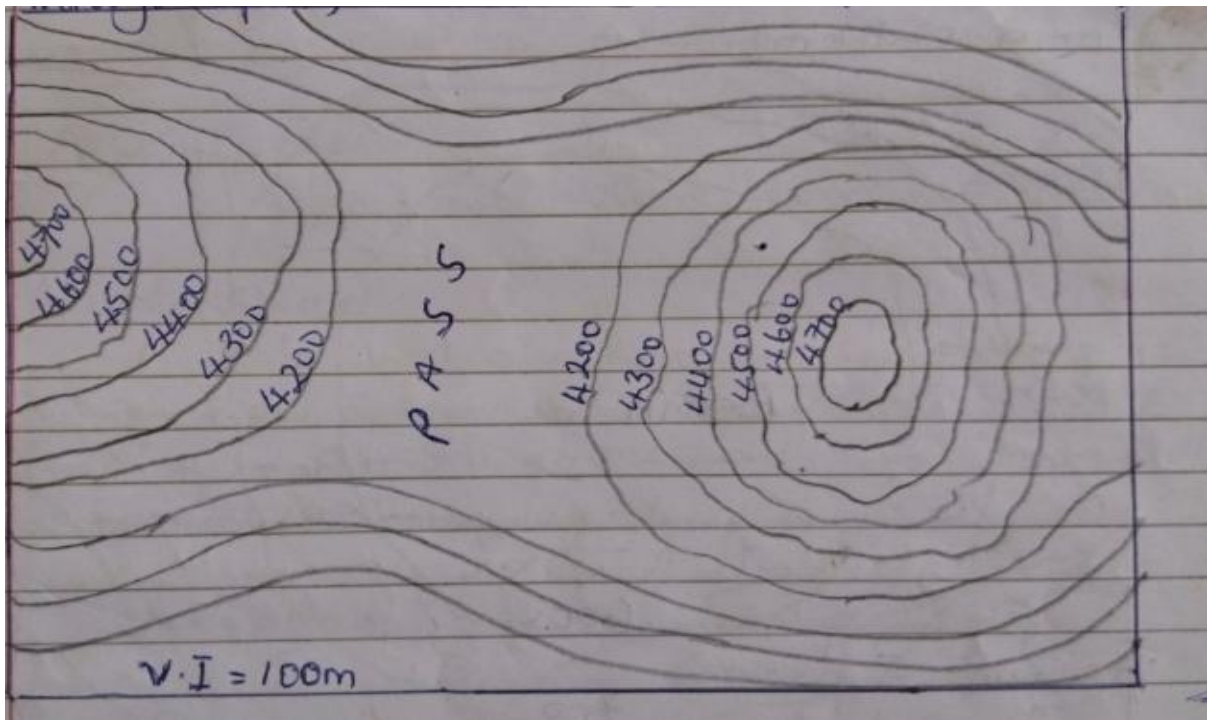 4700
4600
4500
4400
4300
4200
PASS
4200
4300
4400
4500
4600
4700
V.I = 100m